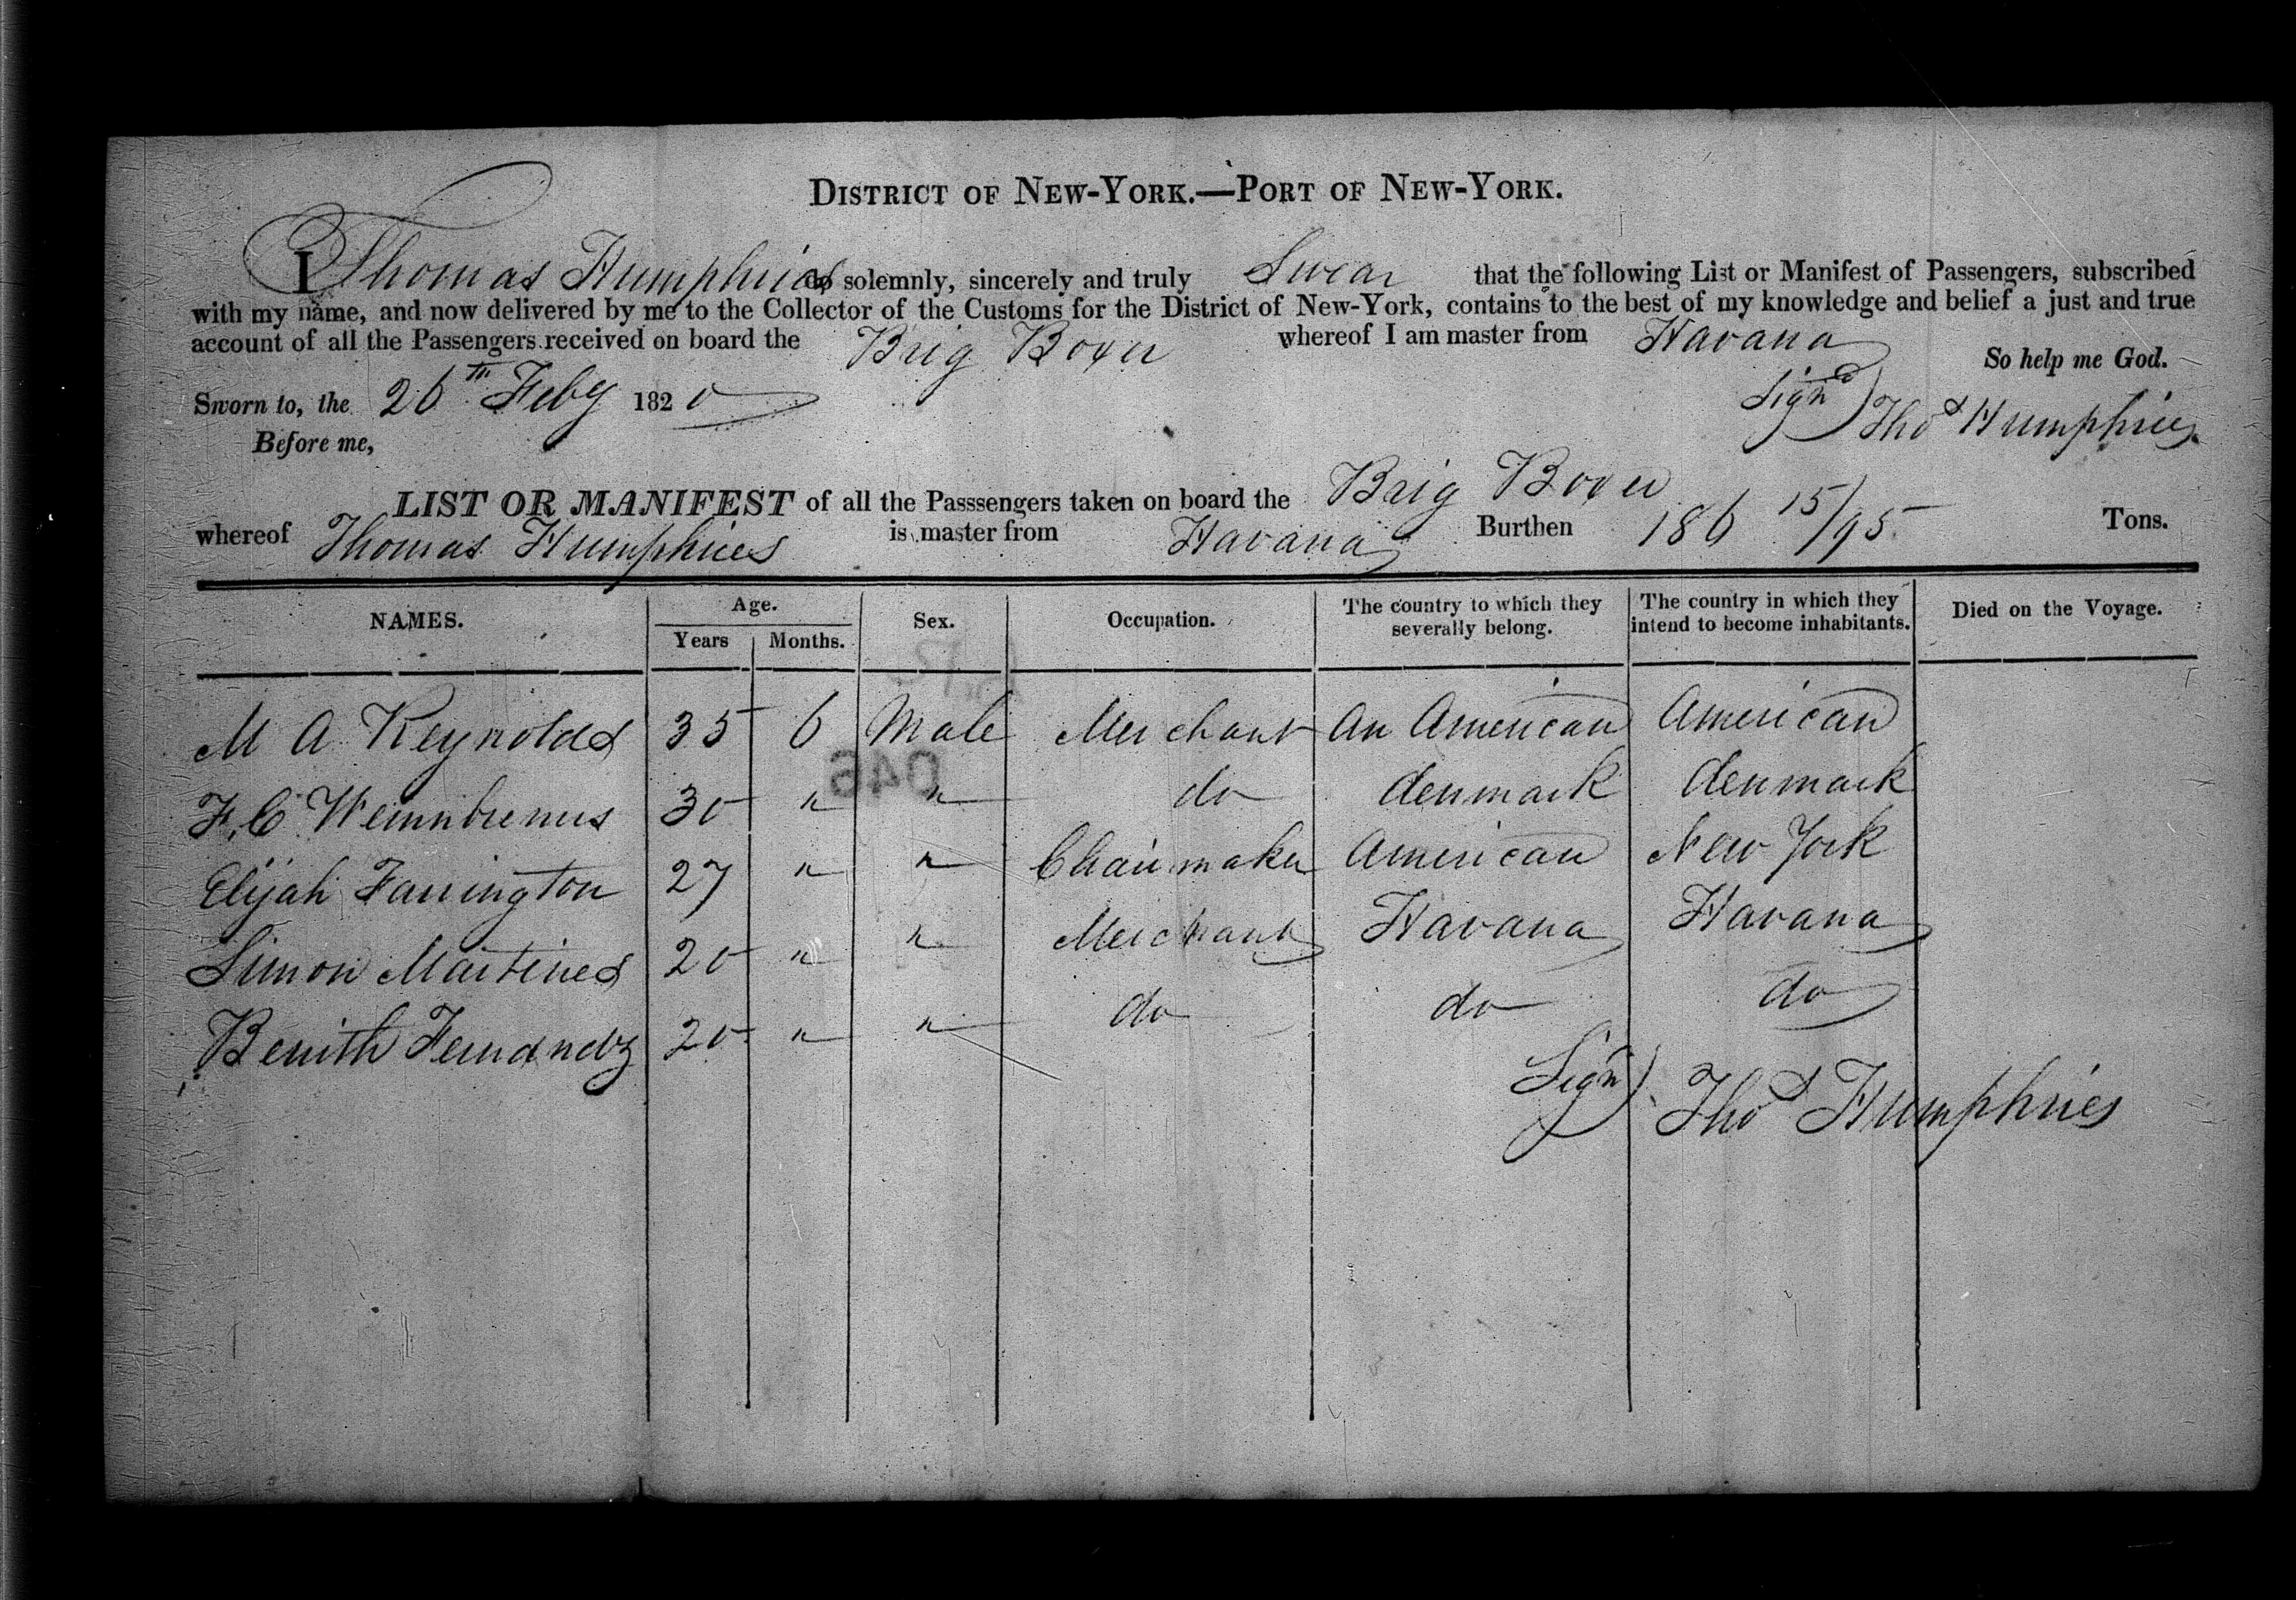 DISTRICT OF NEW-YORK.—PORT OF NEW-YORK.
I Thomas Humphries do solemnly, sincerely and truly Swear that the following List or Manifest of Passengers, subscribed
with my name, and now delivered by me to the Collector of the Customs for the District of New-York, contains to the best of my knowledge and belief a just and true
account of all the Passengers received on board the Brig Boxer whereof I am master from Havana
So help me God.
Sworn to, the 26th Feby 1820
Signd) Thos Humphries
Before me,
LIST OR MANIFEST of all the Passsengers taken on board the Brig Boxer
whereof Thomas Humphries is master from Havana Burthen 186 15/95 Tons.
NAMES. Age. Sex. Occupation. The country to which they severally belong. The country in which they intend to become inhabitants. Died on the Voyage.
Years Months.
M A Reynolds 35 6 Male Merchant An American American
F. C 30 " " do denmark denmark
Elijah Farrington 27 " " Chairmaker American New York
Simon Martines 20 " " Merchant Havana Havana
Benith Fernandz 20 " " do do do
Signd) Thos Humphries
046